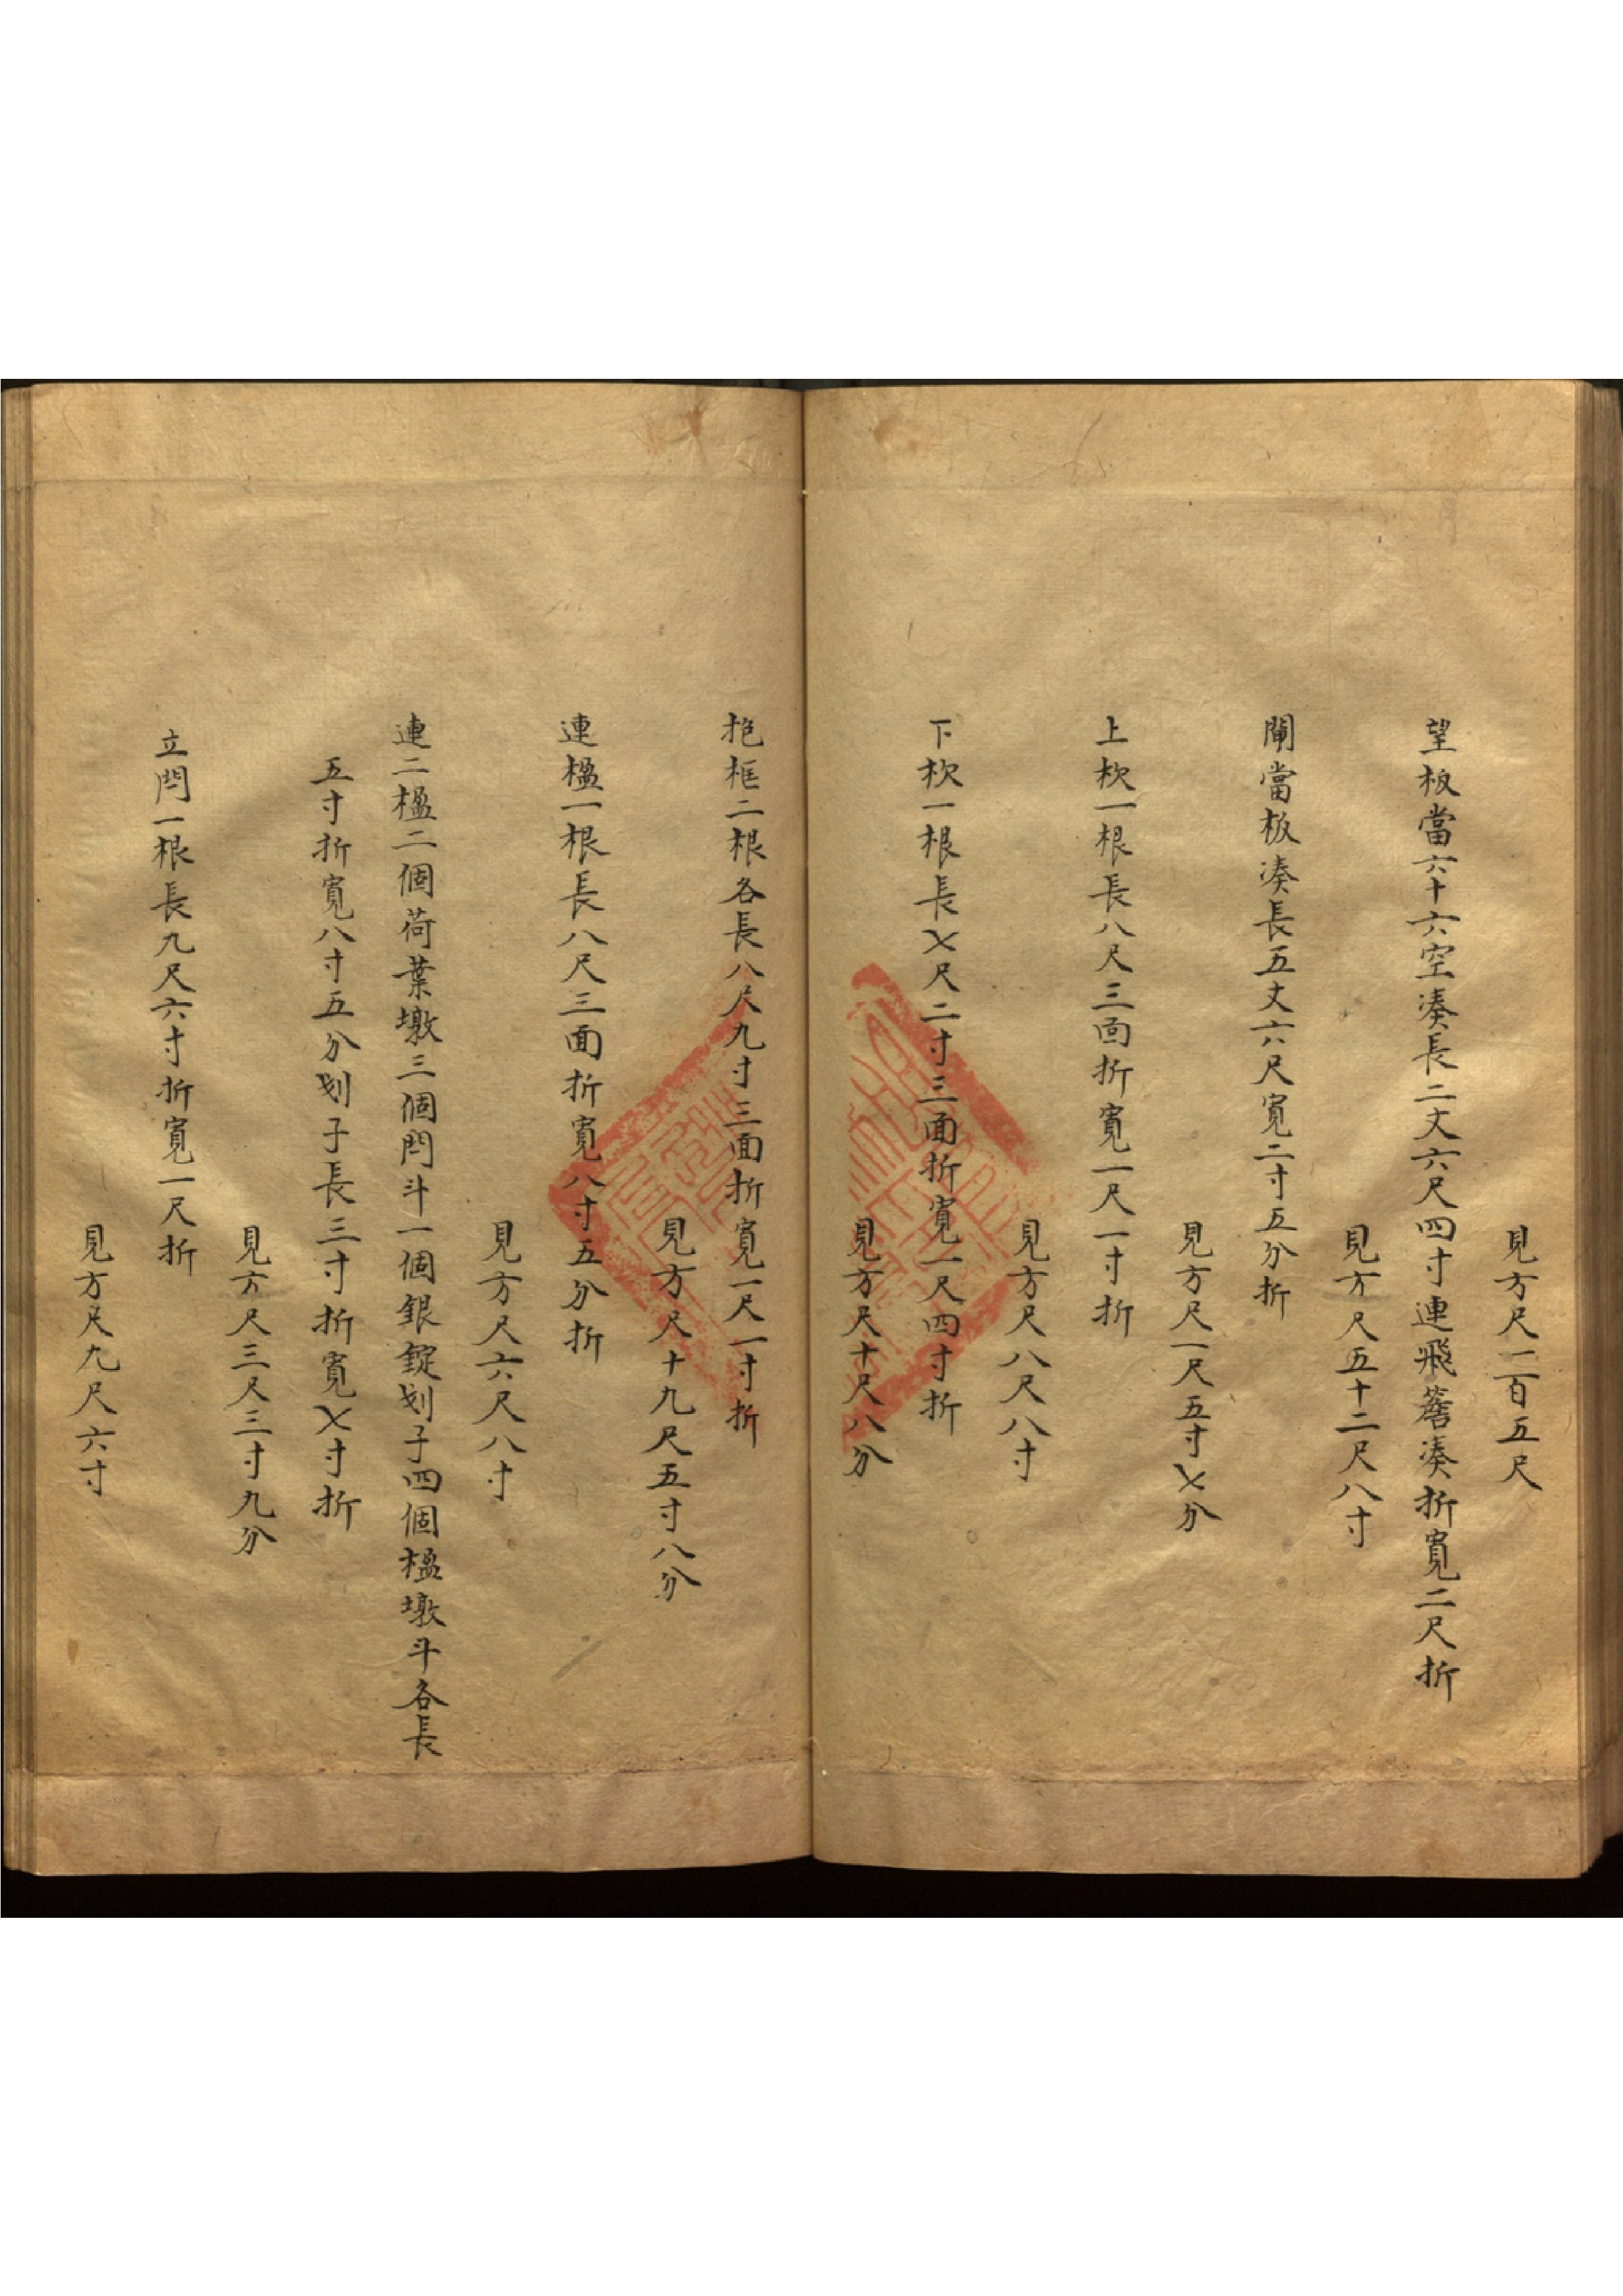 見方尺二百五尺
望板當六十六空湊長二丈六尺四寸連飛簷湊折寬二尺折
見方尺五十二尺八寸
閘當板湊長五丈六尺寬二寸五分折
見方尺一尺五寸七分
上枚一根長八尺三面折寬一尺一寸折
見方尺八尺八寸
下枚一根長七尺二寸三面折寬一尺四寸折
見方尺十尺八分
抱框二根各長八尺九寸三面折寬一尺一寸折
見方尺十九尺五寸八分
連楹一根長八尺三面折寬八寸五分折
見方尺六尺八寸
連二楹二個荷葉墩三個閂斗一個銀錠划子四個楹墩斗各長
五寸折寬八寸五分划子長三寸折寬七寸折
見方尺三尺三寸九分
立閂一根長九尺六寸折寬一尺折
見方尺九尺六寸